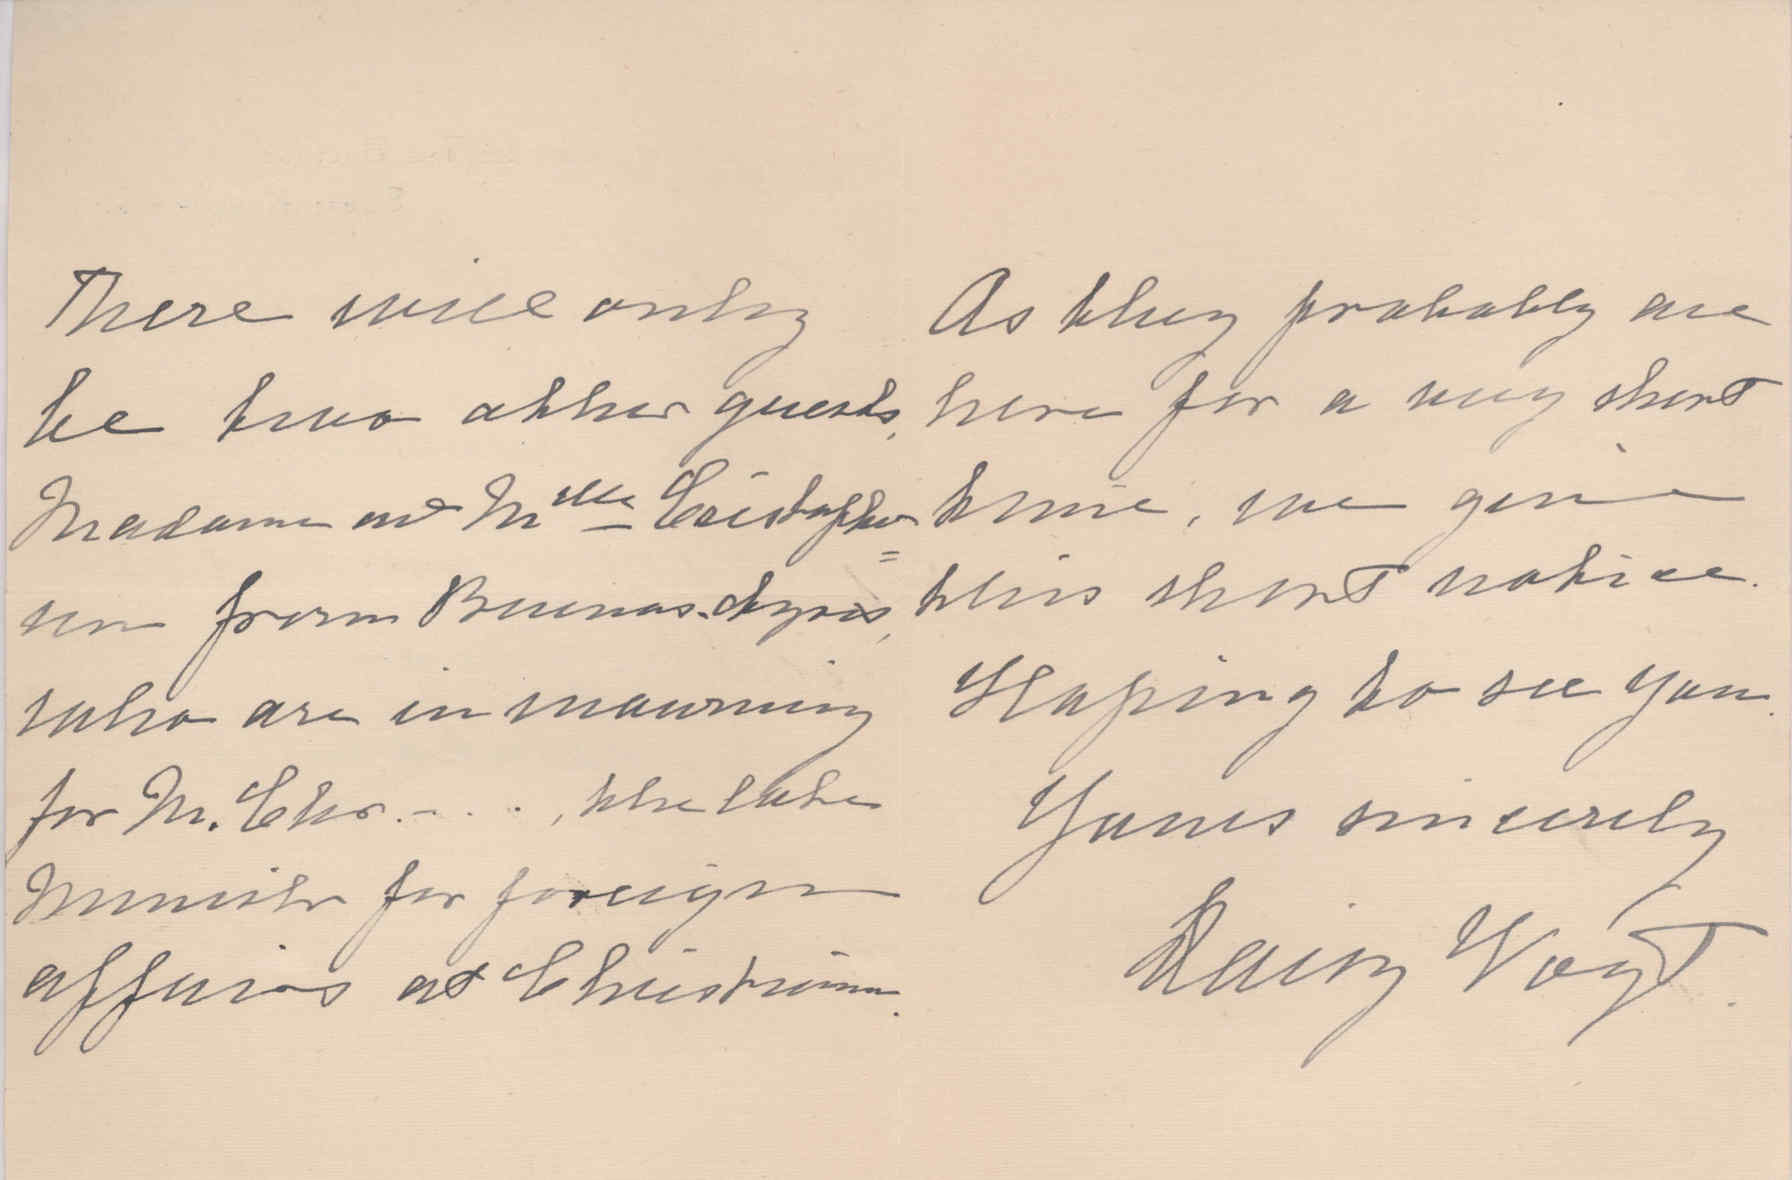 There will only
be two other guests,
Madame and Mlle Cristopher=
sen from Buenos-Ayres,
who are in mourning
for M. Chr. - . . , the late
Minister for foreign
affairs at Christiania.
As they probably are
here for a very short
time, we give
this short notice.
Hoping to see you.
Yours sincerely
Daisy Vogt.